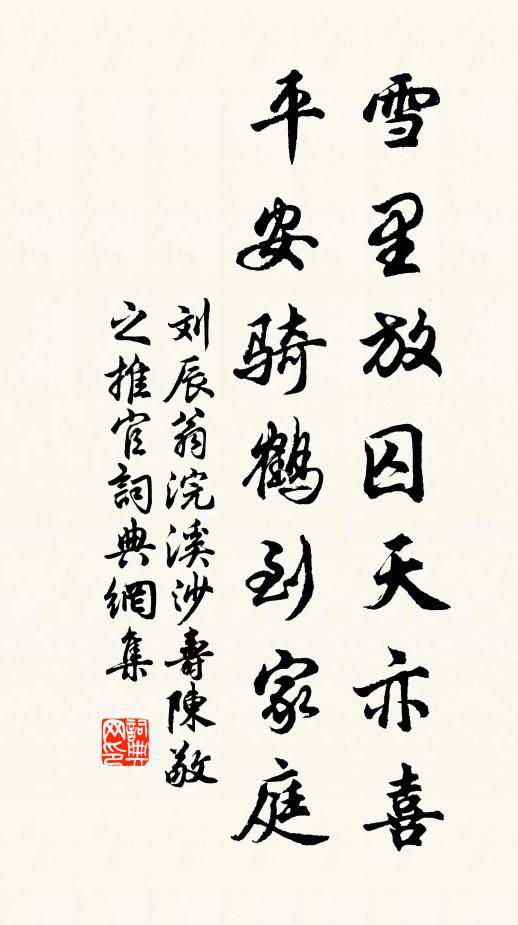 雪里放囚天亦喜
平安骑鹤到家庭
刘辰翁浣溪沙壽陳敬
之推官詞典網集
詞典
网印